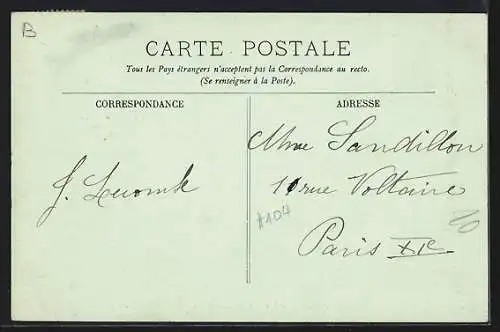 B
CARTE POSTALE
Tous les Pays étrangers n'acceptent pas la Correspondance au recto.
(Se renseigner à la Poste).
CORRESPONDANCE
ADRESSE
Mme Sandillon
11 rue Voltaire
Paris XIe
J.
#104
20